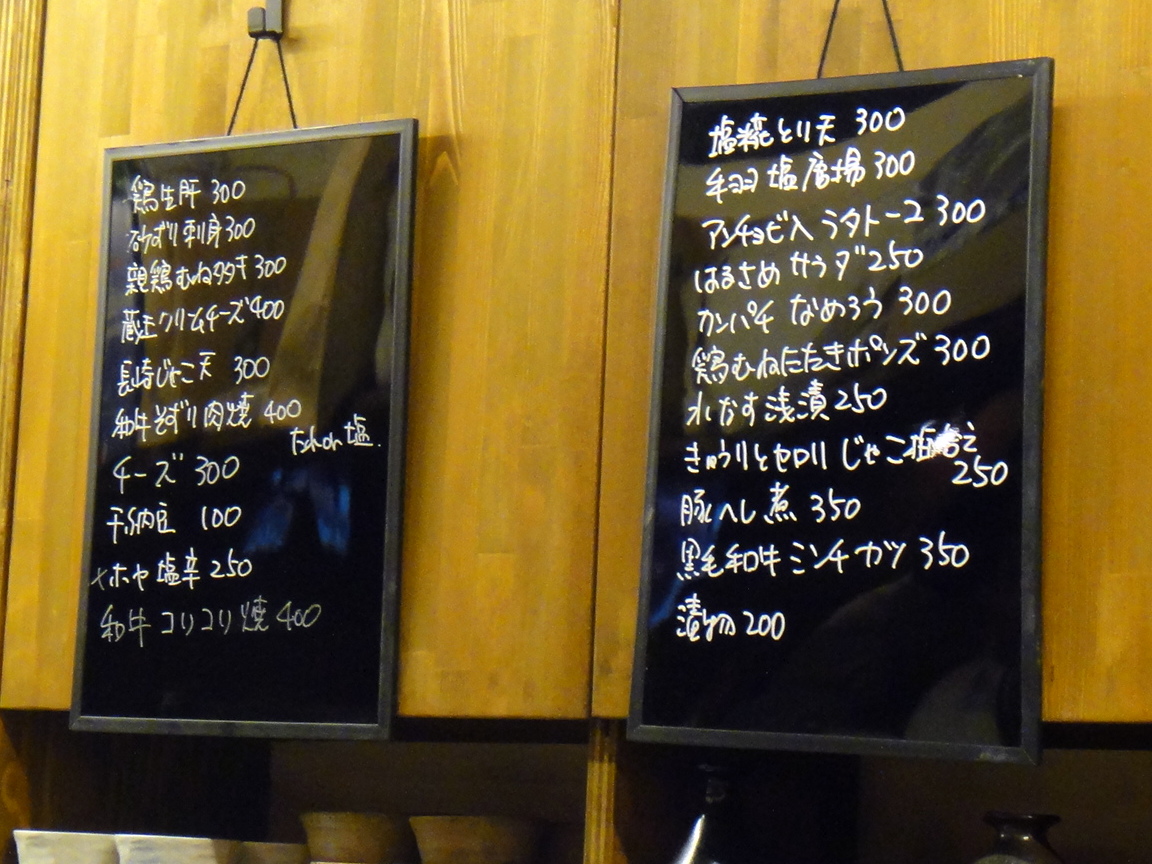 鶏生肝 300
砂ずり刺身 300
親鶏むねタタキ 300
蔵王クリームチーズ 400
長崎じゃこ天 300
和牛そずり肉焼 400
たれor塩.
チーズ 300
干納豆 100
ホヤ塩辛 250
和牛コリコリ焼 400
塩糀とり天 300
手羽塩唐揚 300
アンチョビ入ラタトーユ 300
はるさめサラダ 250
カンパチなめろう 300
鶏むねたたきポンズ 300
水なす浅漬 250
きゅうりとセロリじゃこ
250
豚へし煮 350
黒毛和牛ミンチカツ 350
漬物 200